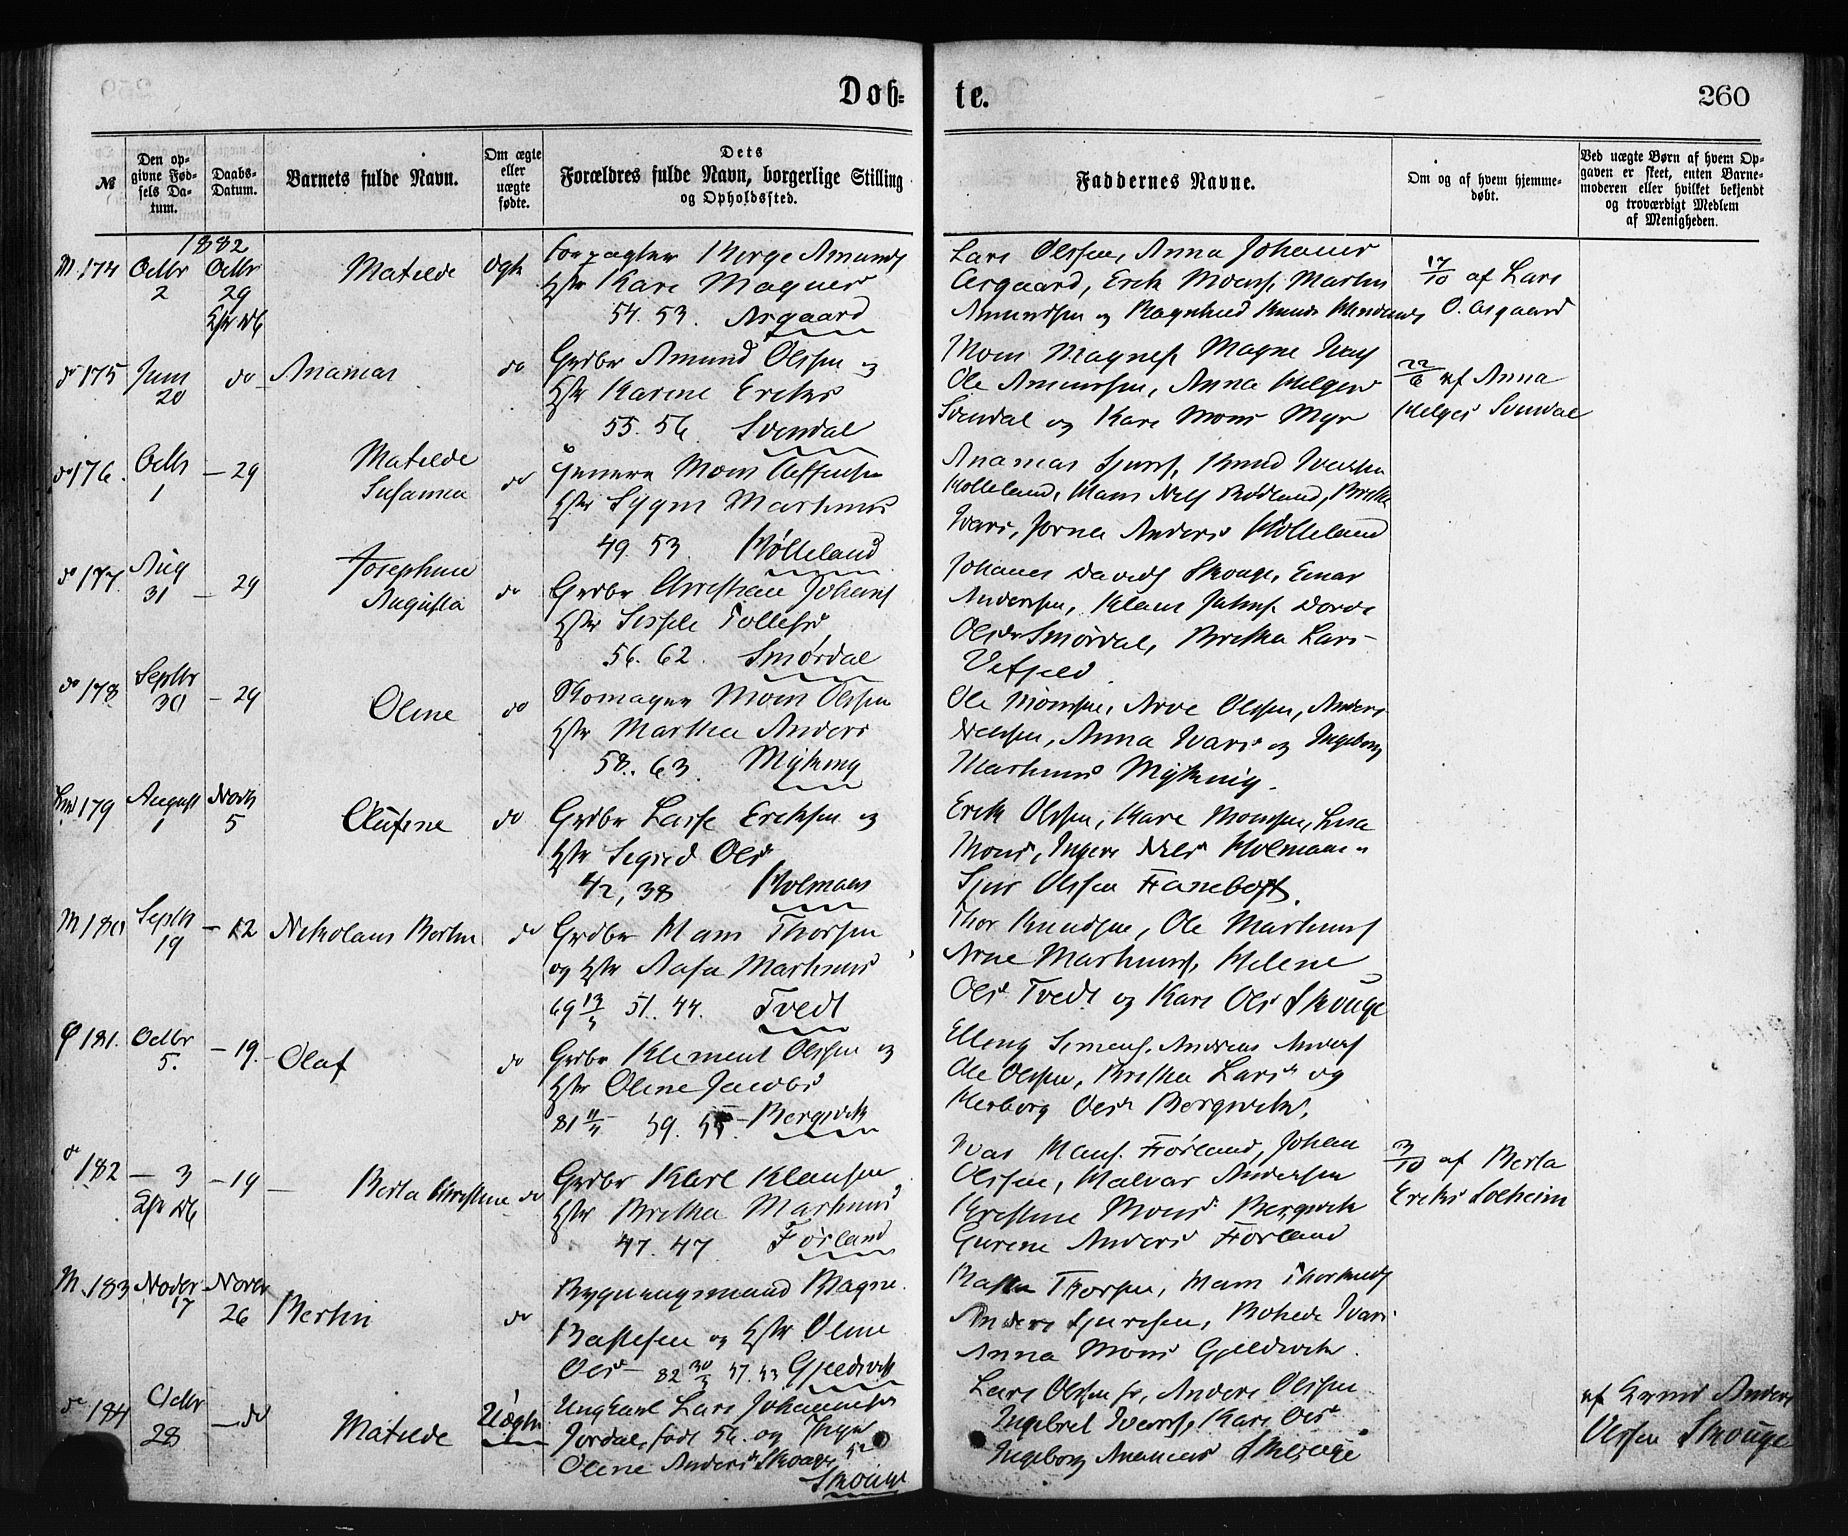 Døb=
te.
260
№
Den op-
givne Fød-
sels Da-
tum.
Daabs-
Datum.
Barnets fulde Navn.
Om ægte
eller
uægte
fødte.
Dets
Forældres fulde Navn, borgerlige Stilling
og Opholdssted.
Faddernes Navne.
Om og af hvem hjemme-
døbt.
Ved uægte Børn af hvem Op-
gaven er skeet, enten Barne-
moderen eller hvilket bekjendt
og troværdigt Medlem
af Menigheden.
1882
M 174 Octbr 2 Octbr 29 Matilde Ægte
Forpagter Børge Amunds
Hstr Kari Magnes
54. 53. Asgaard
Lars Olssen, Anna Johannes
Asgaard, Erik Monss, Martin
Amundsen og Ragnhild Knuds
17/10 af Lars
O. Asgaard
do 175 Juni 20 do Ananias do
Grdbr Amund Olssen og
Hstr Karine Eriks
55. 56. Svendal
Mons Magness, Magne Ivars
Ole Amundsen, Anna Helges
Svendal og Kari Mons Myr
22/6 af Anna
Helges Svendal
do 176. Octbr 1 – 29 Matilde Susanna do
Mons
Hstr Martinus
49. 53. Hölleland
Ananias Sjurs, Knud Iversen
Hölleland, Hans Nels Rödland, Britha
Ivars, Anders Hölleland
do 177. Aug 31 – 29 Josephine Augusta do
Grdbr Christian Johans
Hstr Sissele Tollefs
56. 62. Smørdal
Johannes Davids Skouge, Einar
Anderssen, Klaus
Olsdr Smørdal, Britha Lars
do 178 Septbr 30 – 29 Oline do
Skomager Mons Olssen
Hstr Martha Anders
58. 63. Myking
Ole Monssen, Arve Olssen, Anders
Anna Ivars og Ingeborg
Martinus Myking.
179 August 1 Novbr 5 Olufine do
Grdbr Lasse Eriksen og
Hstr Segred Ols
42, 38 Holmaas
Erik Olssen, Kari Monssen, Lisa
Mons, Inger Nels Holmaas
Sjur Olssen Fanebost.
M 180 Septbr 19 – 12 Nikolaus Bertin do
Grdbr Hans Thorsen
og Hstr Aasa Martinus
69 13/5 51. 44. Tvedt
Thor Knudsen, Ole Martinus
Arne Martinus, Helene
Ols Tvedt og Kari Ols Skouge
181. Octbr 5. – 19. Olaf do
Grdbr Klement Olssen og
Hstr Oline Jacobs
59. 55. Bergsvik
Elling Simens, Andreas Anders
Ole Olssen, Britha Lars og
Herborg Ols Bergsvik.
do 182 – 3 – 19 Berta Christine do
Grdbr Karl Klausen
Hstr Britha Martinus
47. 47 Førland
Ivar Hans. Førland, Johan
Olssen, Halvar Andersen
Kristine Mons Bergsvik
Gurine Anders Førland
3/10 af Berta
Eriks Solheim
M. 183 Novbr 17 Novbr 26 Bertin do
Bygningsmand Magne
Bastesen og Hstr Oline
Ols – 82 30/3 57. 53 Gjeldsvik
Basten Thorsen, Hans
Anders Sjursen, Ivars
Anna Mons Gjeldsvik.
do 184 Octbr 28 – do Matilde Uægte
Ungkarl Lars Johannessen
Jordal, født 56. og Pige
Oline Anders Skouge 52
Skouge
Lars Olssen sr, Anders Olssen
Ingebret Ivers, Kari Ols
Ingeborg Ananias Skouge
af Anders
Olssen Skouge